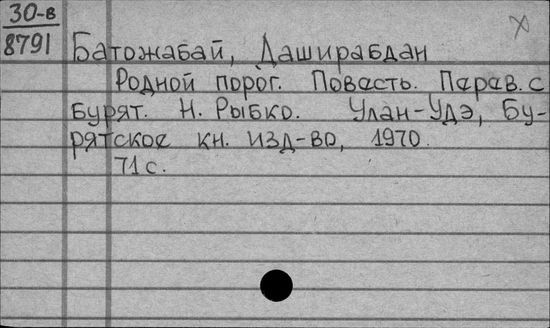 30-в
8791
Батожабай, Даширабдан
Родной порог. Повесть. Перев. с
бурят. Н. Рыбко. Улан-Удэ, Бу-
рятское кн. изд-во, 1970.
71 с.